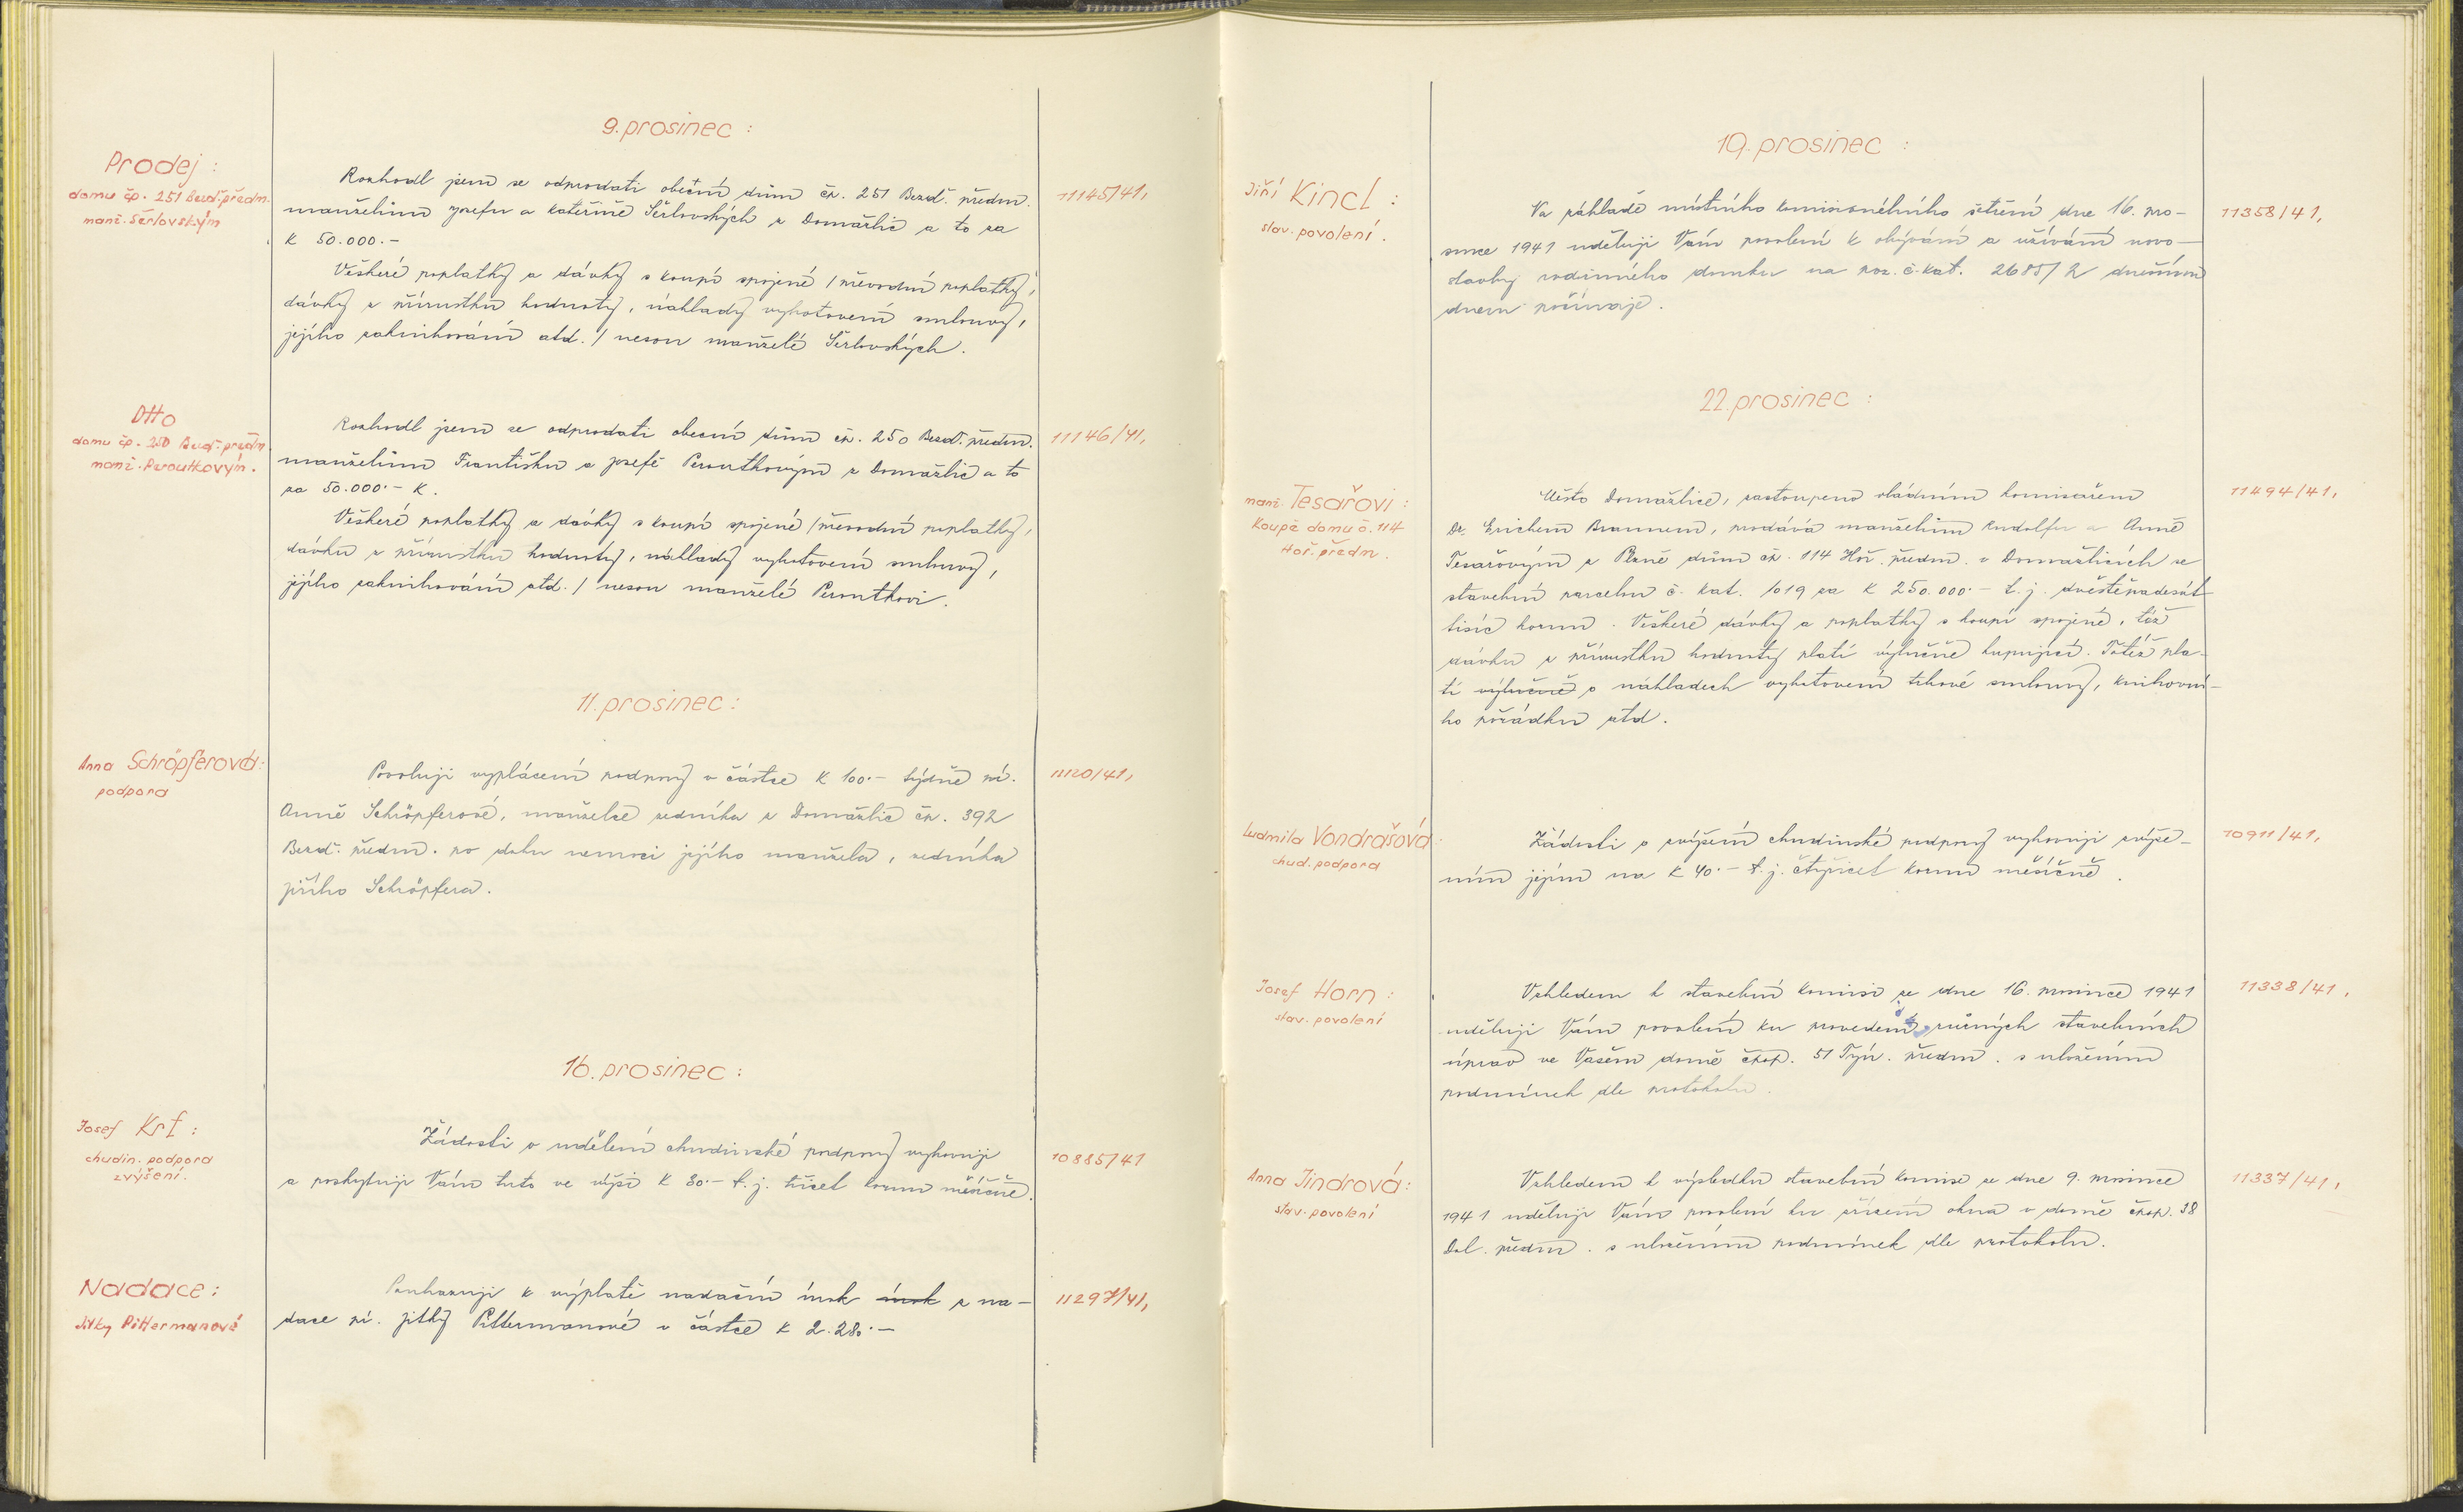 9. prosinec :
Prodej :
domu čp. 251 Bezd. předm.
manž. Šerlovským
Rozhodl jsem se odprodati obecní dům čp. 251 Bezd. předm.
manželům Josefu a Kateřině Šerlovských z Domažlic a to za
K 50.000.-
11145/41,
Veškeré poplatky a dávky s koupí spojené / převodní poplatky,
dávky z přírustku hodnoty, náklady vyhotovení smlouvy,
jejího zaknihování atd. / nesou manželé Šerlovských.
Dtto
domu čp. 250 Bezd. předm.
manž. Peroutkovým.
Rozhodl jsem se odprodati obecní dům čp. 250 Bezd. předm.
manželům Františku a Josefě Peroutkovým z Domažlic a to
za 50.000.- K.
11146/41,
Veškeré poplatky a dávky s koupí spojené / převodní poplatky,
dávku z přírustku hodnoty, náklady vyhotovení smlouvy,
jejího zaknihování atd. / nesou manželé Peroutkovi.
11. prosinec :
Anna Schröpferová :
podpora
Povoluji vyplácení podpory v částce K 100.- týdně pí.
Anně Schröpferové, manželce zedníka z Domažlic čp. 392
Bezd. předm. po dobu nemoci jejího manžela, zedníka
Jiřího Schröpfera.
11120/41,
16. prosinec :
Josef Krf :
chudin. podpora
zvýšení.
Žádosti o udělení chudinské podpory vyhovuji
a poskytuji Vám tuto ve výši K 30.- t. j. třicet korun měsíčně.
10885/41
Nadace :
Jitky Pittermanové
Poukazuji k výplatě nadační úrok úrok z na-
dace pí. Jitky Pittermanové v částce K 2.280.-
11297/41,
19. prosinec :
Jiří Kincl :
stav. povolení.
Na základě místního komisionélního šetření dne 16. pro-
since 1941 uděluji Vám povolení k obývání a užívání novo-
stavby rodinného domku na poz. č. kat. 2685/2 dnešním
dnem počínaje.
11358/41,
22. prosinec :
manž. Tesařovi :
Koupě domu č. 114
Hoř. předm.
Město Domažlice, zastoupeno vládním komisařem
Dr. Erichem Braunem, prodává manželům Rudolfu a Anně
Tesařovým z Plzně dům čp. 114 Hoř. předm. v Domažlicích se
stavební parcelou č. kat. 1019 za K 250.000.- t. j. dvěstěpadesát
tisíc korun. Veškeré dávky a poplatky s koupí spojené, též
dávku z přírustku hodnoty platí výlučně kupující. Totéž pla-
tí výlučně o nákladech vyhotovení trhové smlouvy, knihovní-
ho pořádku atd.
11494/41,
Ludmila Vondrašová :
chud. podpora
Žádosti o zvýšení chudinské podpory vyhovuji zvýše-
ním jejím na K 40.- t. j. čtyřicet korun měsíčně.
10911/41,
Josef Horn :
stav. povolení
Vzhledem k stavební komisi ze dne 16. prosince 1941
uděluji Vám povolení ku provedení různých stavebních
úprav ve Vašem domě čpop. 51 Týn. předm. s uložením
podmínek dle protokolu.
11338/41,
Anna Jindrová :
stav. povolení
Vzhledem k výsledku stavební komise ze dne 9. prosince
1941 uděluji Vám povolení ku zřízení okna v domě čpop. 38
Dol. předm. s uložením podmínek dle protokolu.
11337/41,